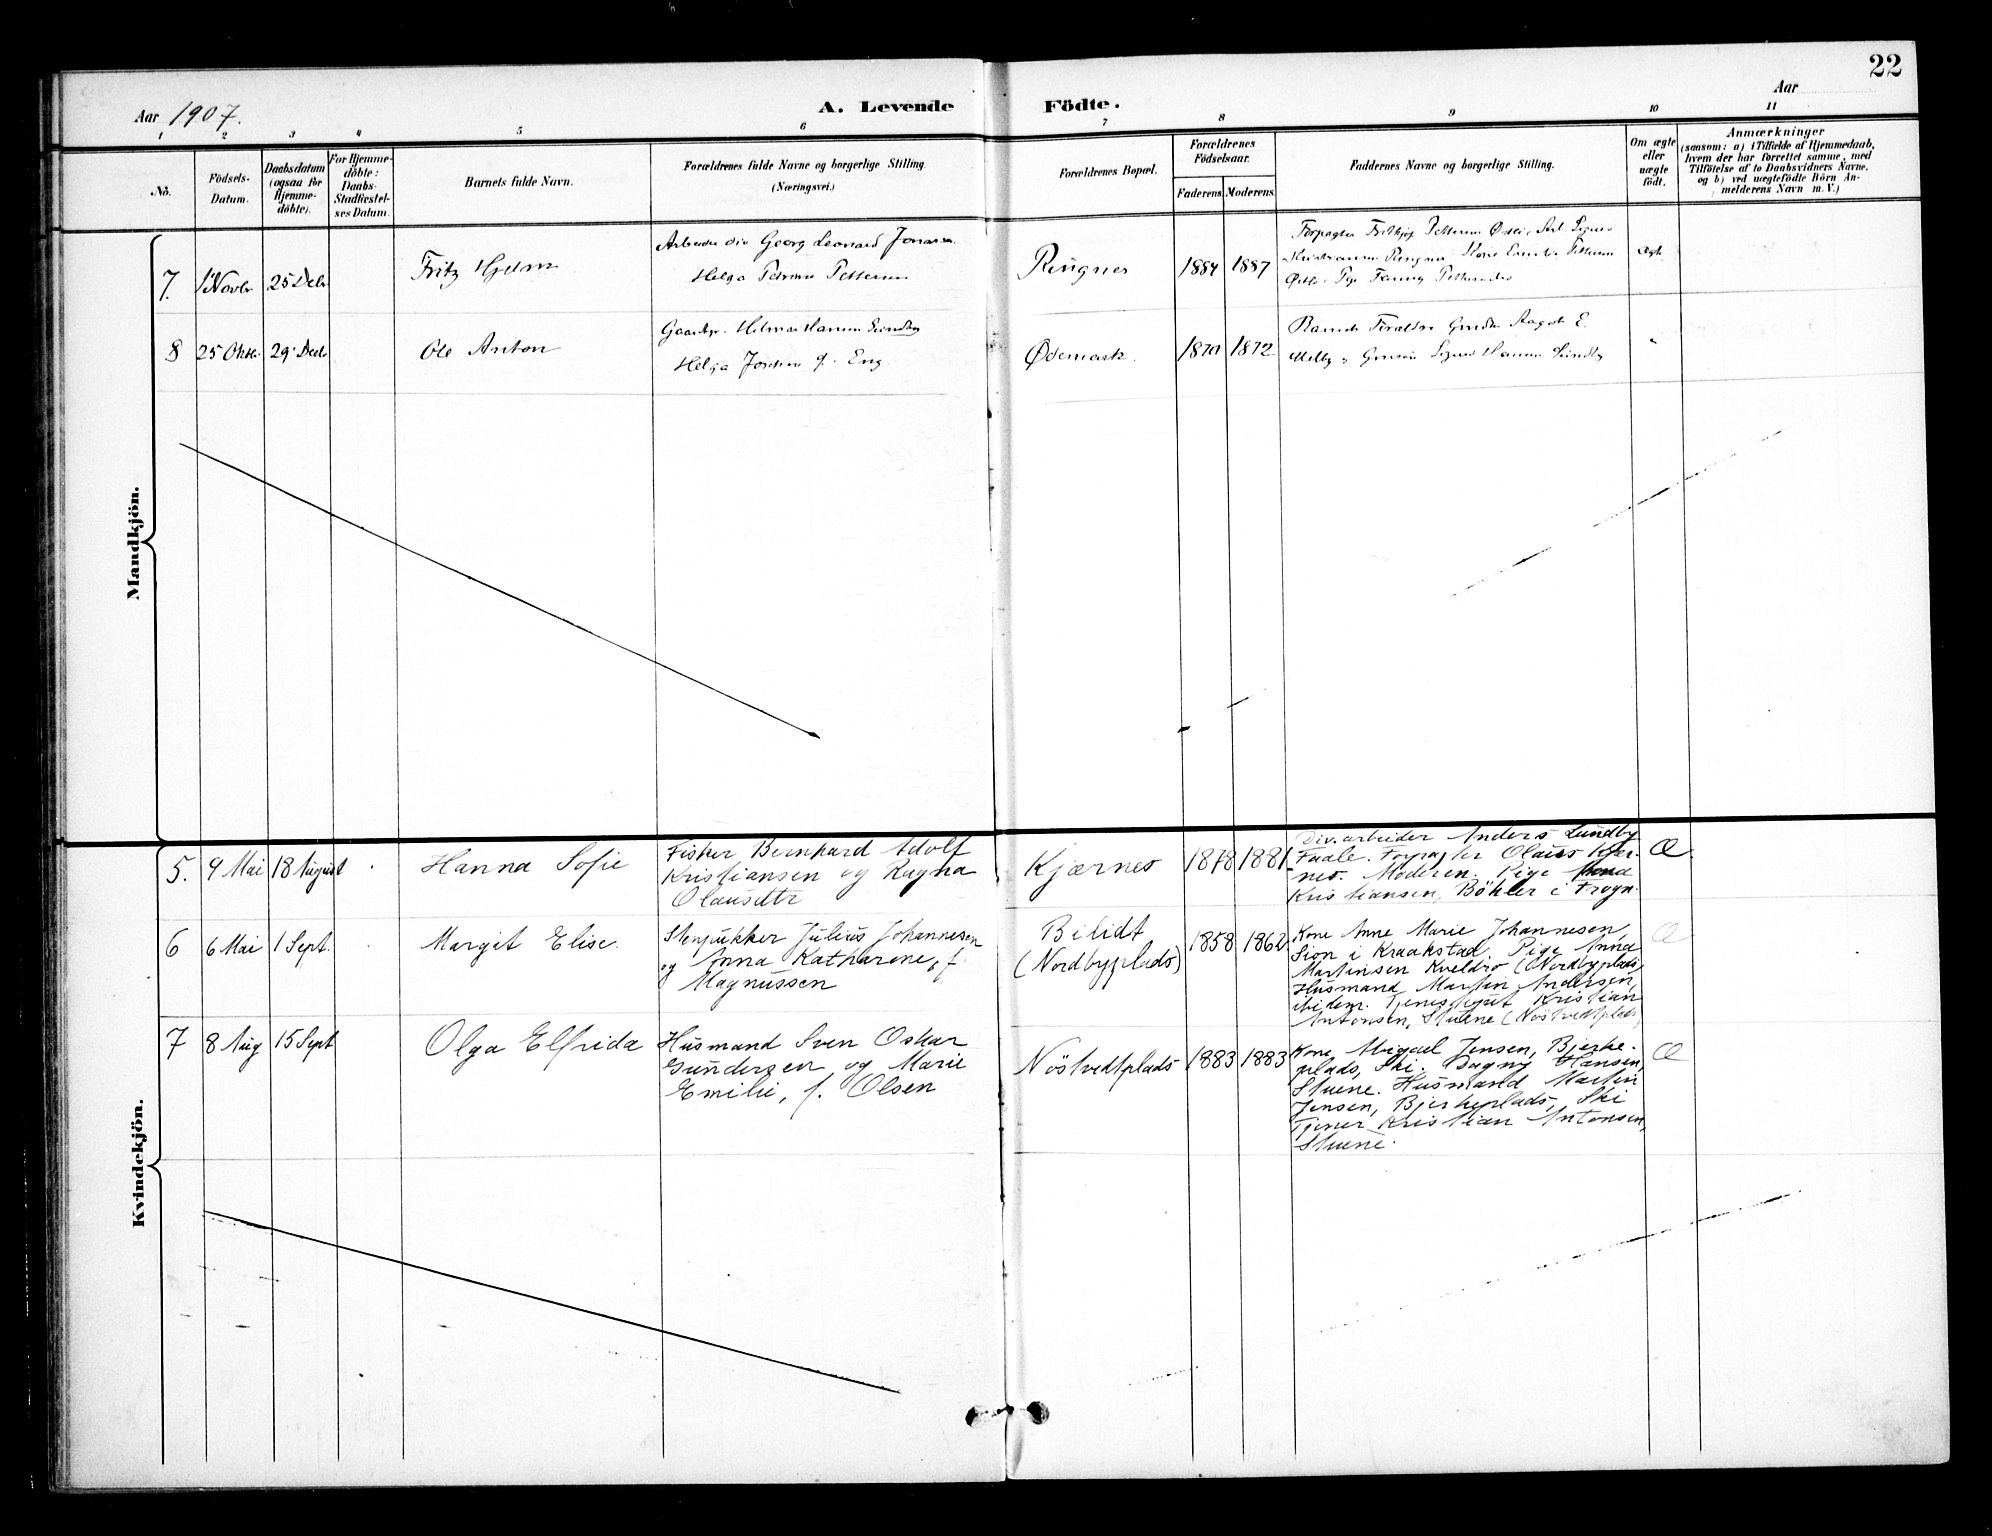 22
Aar 1907.
A. Levende
Födte.
Aar
1 2 3 4 5 6 7 8 9 10 11
No.
Födsels-
Datum.
Daabsdatum
(ogsaa for
Hjemme-
döbte).
For Hjemme-
döbte:
Daabs-
Stadfæstel-
ses Datum.
Barnets fulde Navn.
Forældrenes fulde Navne og borgerlige Stilling.
(Næringsvei.)
Forældrenes Bopæl.
Forældrenes
Födselsaar.
Faderens. Moderens.
Faddernes Navne og borgerlige Stilling.
Om ægte
eller
uægte
født.
Anmærkninger
(saasom: a) i Tilfælde af Hjemmedaab,
hvem der har forrettet samme, med
Tilföielse af to Daabsvidners Navne,
og b) ved uægtefödte Börn An-
melderens Navn m. V.)
Mandkjön.
7. 1 Novbr 25 Debr
Fritz Hjelm
Arbeider div Georg Leonard
Helga Petrine Pettersen
Ringnes
1884 1887
Ægte
8 25 Oktr. 29 Decb
Ole Anton
Gaardbr. Helmer Hansen Sundby
Helga Josefine f. Eng
Ødemark.
1870 1872
"
Kvindekjön.
5. 9 Mai 18 August
Hanna Sofie
Fisker Bernhard Adolf
Kristiansen og Ragna
Olausdtr
Kjærnes
1878 1881
Div. arbeider Anders Lundby
Faale. Forpagter Olaus Kjær-
nes. Moderen. Pige
Kristiansen, Böhler i Frogn.
Æ.
6 6 Mai 1 Sept.
Margit Elise.
Stenpukker Julius Johannesen
og Anna Katharine, f.
Magnussen
Bilidt
(Nordbyplads)
1858 1862
Kone Anne Marie Johannesen,
Sion i Kraakstad. Pige Anna
Martinsen Kveldro (Nordbyplads)
Husmand Martin Andersen,
ibidem. Tjenestgut Kristian
Antonsen, Stuene (Nöstvedtplads)
Æ
7 8 Aug 15 Sept
Olga Elfrida
Husmand Sven Oskar
Gundersen og Marie
Emilie, f. Olsen
Nöstvedtplads
1883 1883
Kone Abigael Jensen, Bjerke-
plads, Ski. Dagny Hansen,
Stuene. Husmand Martin
Jensen, Bjerkeplads, Ski
Tjener Kristian Antonsen,
Stuene.
Æ